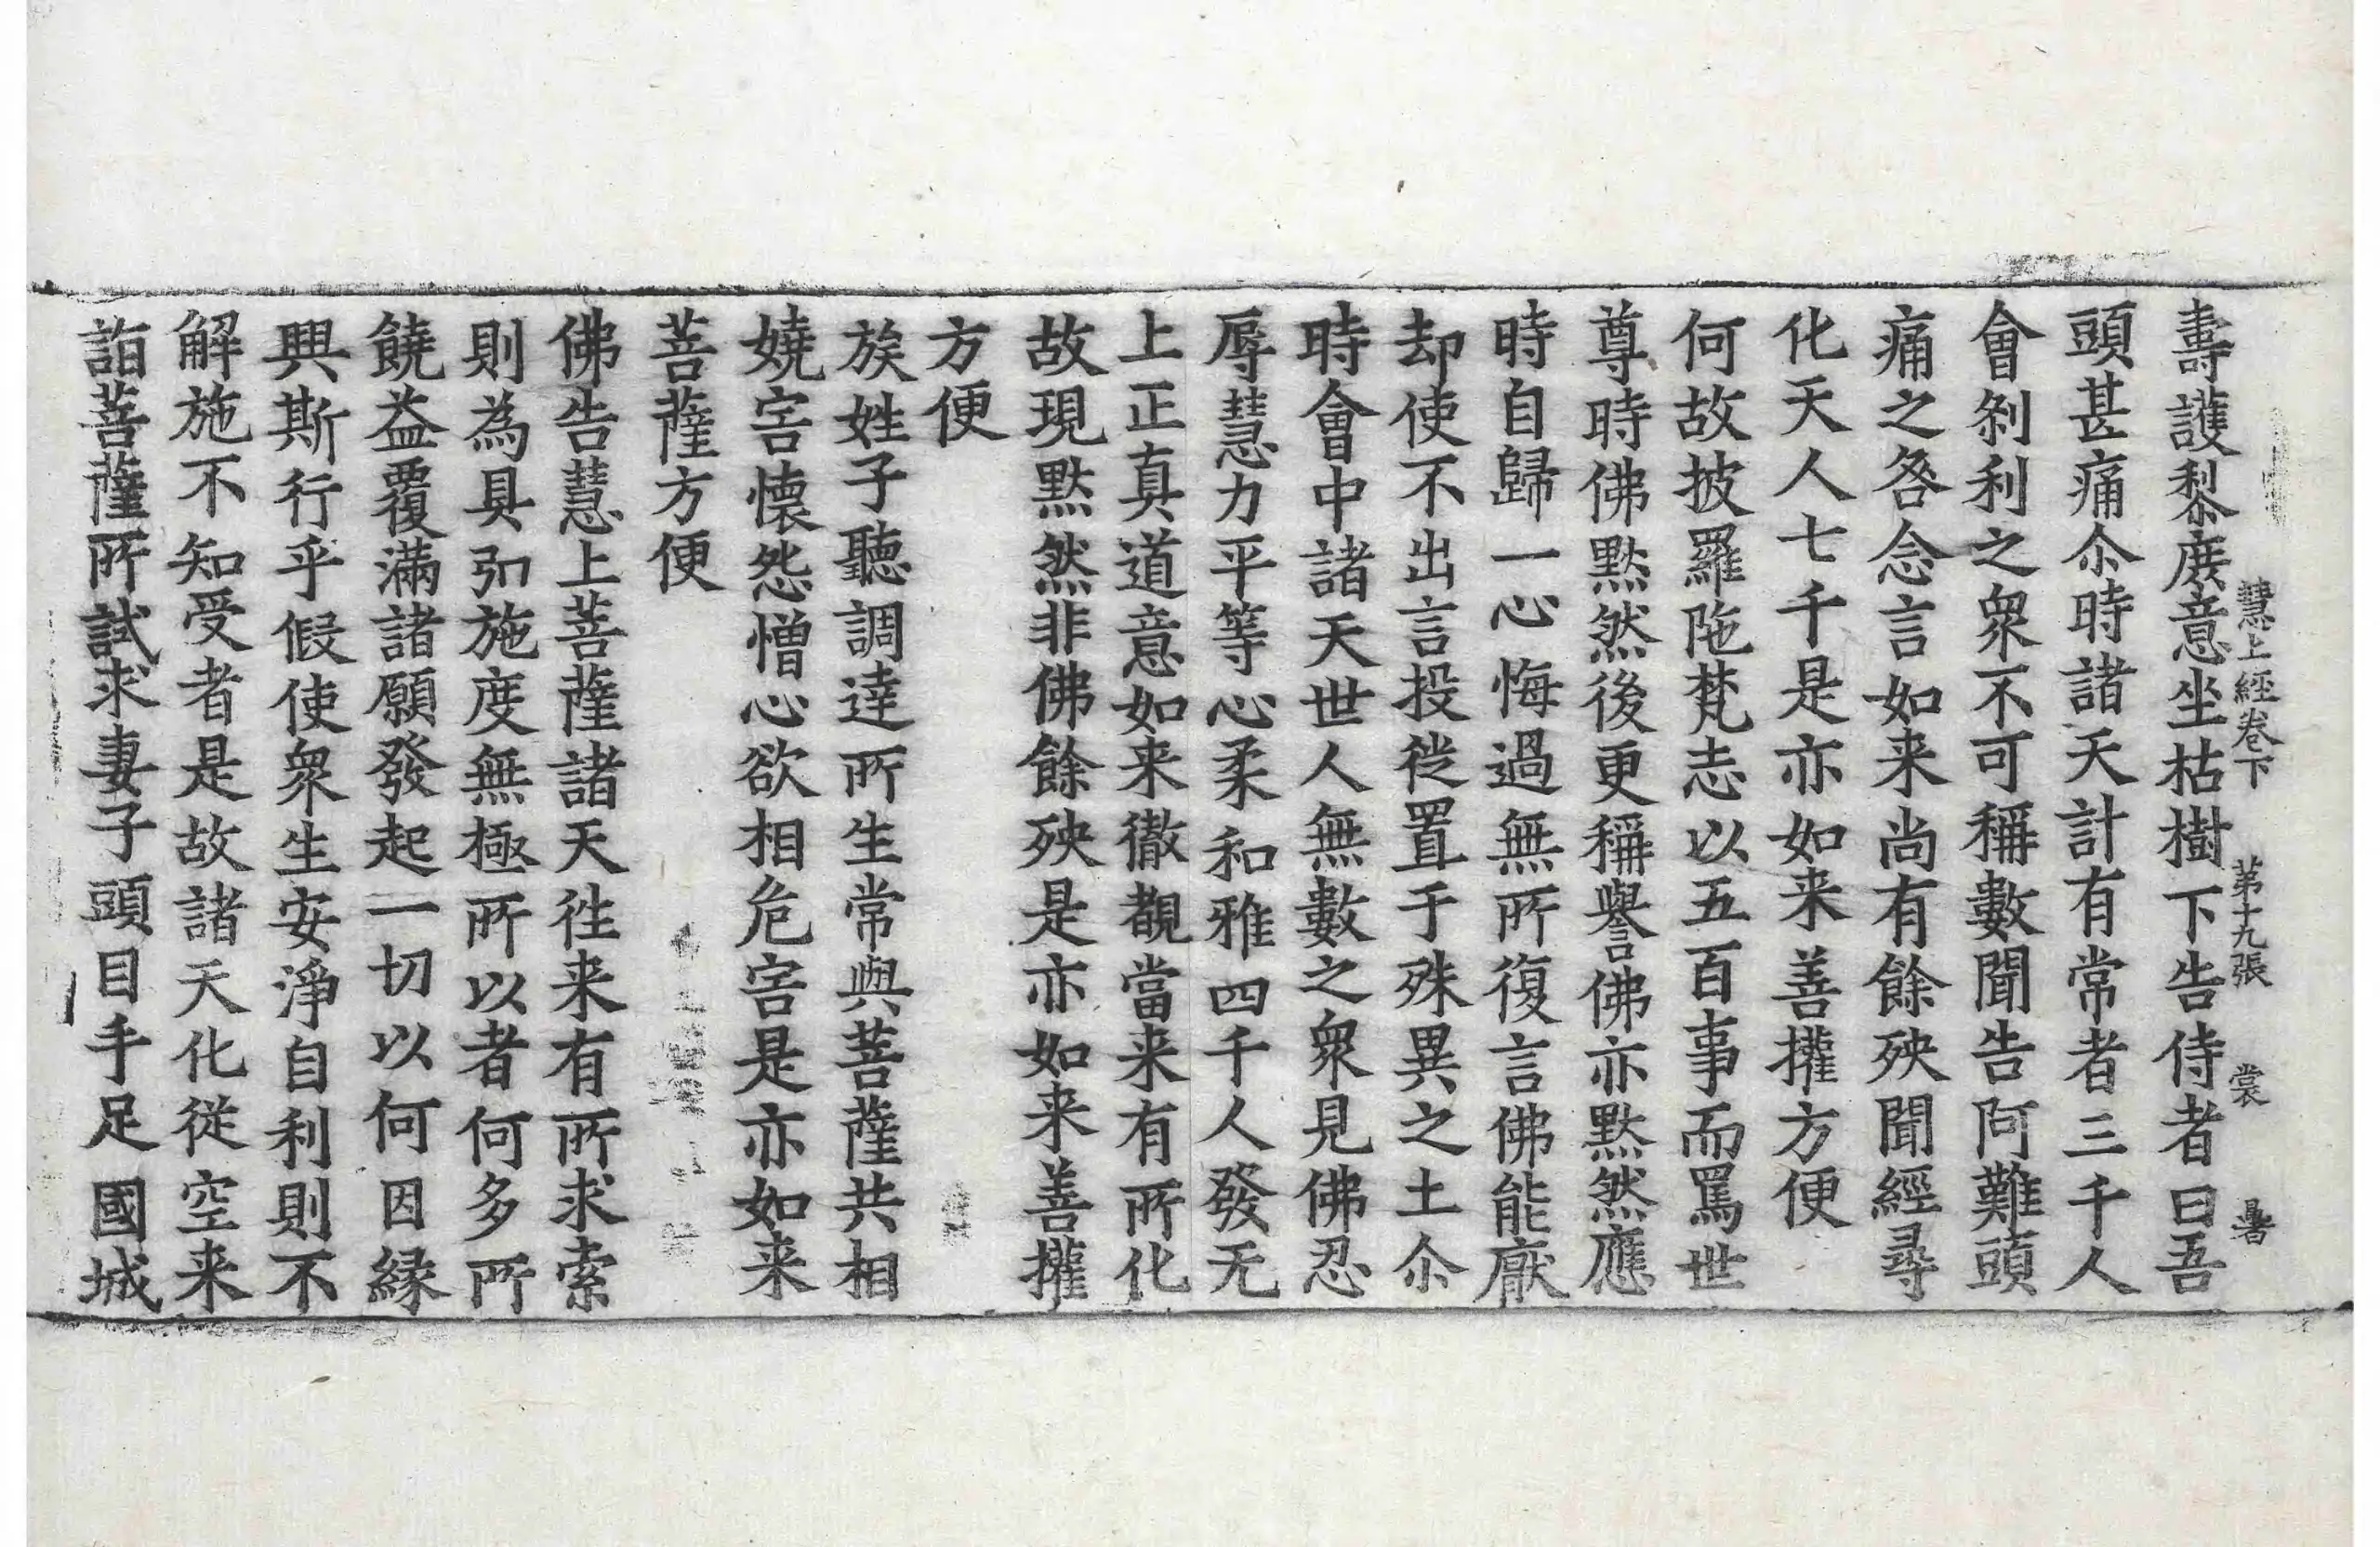 壽護梨廣意坐枯樹下告侍者曰吾
慧上經卷下 第十九張 裳 暑
頭甚痛尒時諸天計有常者三千人
會剎利之衆不可稱數聞告阿難頭
痛之咎念言如来尚有餘殃聞經尋
化天人七千是亦如来善攉方便
何故披羅陁梵志以五百事而罵世
尊時佛默然後更稱譽佛亦默然應
時自歸一心悔過無所復言佛能厭
却使不出言投徙置于殊異之土尒
時會中諸天世人無數之衆見佛忍
辱慧力平等心柔和雅四千人發无
上正真道意如来徹覩當来有所化
故現默然非佛餘殃是亦如来善攉
方便
族姓子聽調達所生常與菩薩共相
嬈害懷怨憎心欲相危害是亦如来
菩薩方便
佛告慧上菩薩諸天徃来有所求索
則為具足施度無極所以者何多所
饒益覆滿諸願發起一切以何因縁
興斯行乎假使衆生安淨自利則不
解施不知受者是故諸天化從空来
詣菩薩所試求妻子頭目手足國城